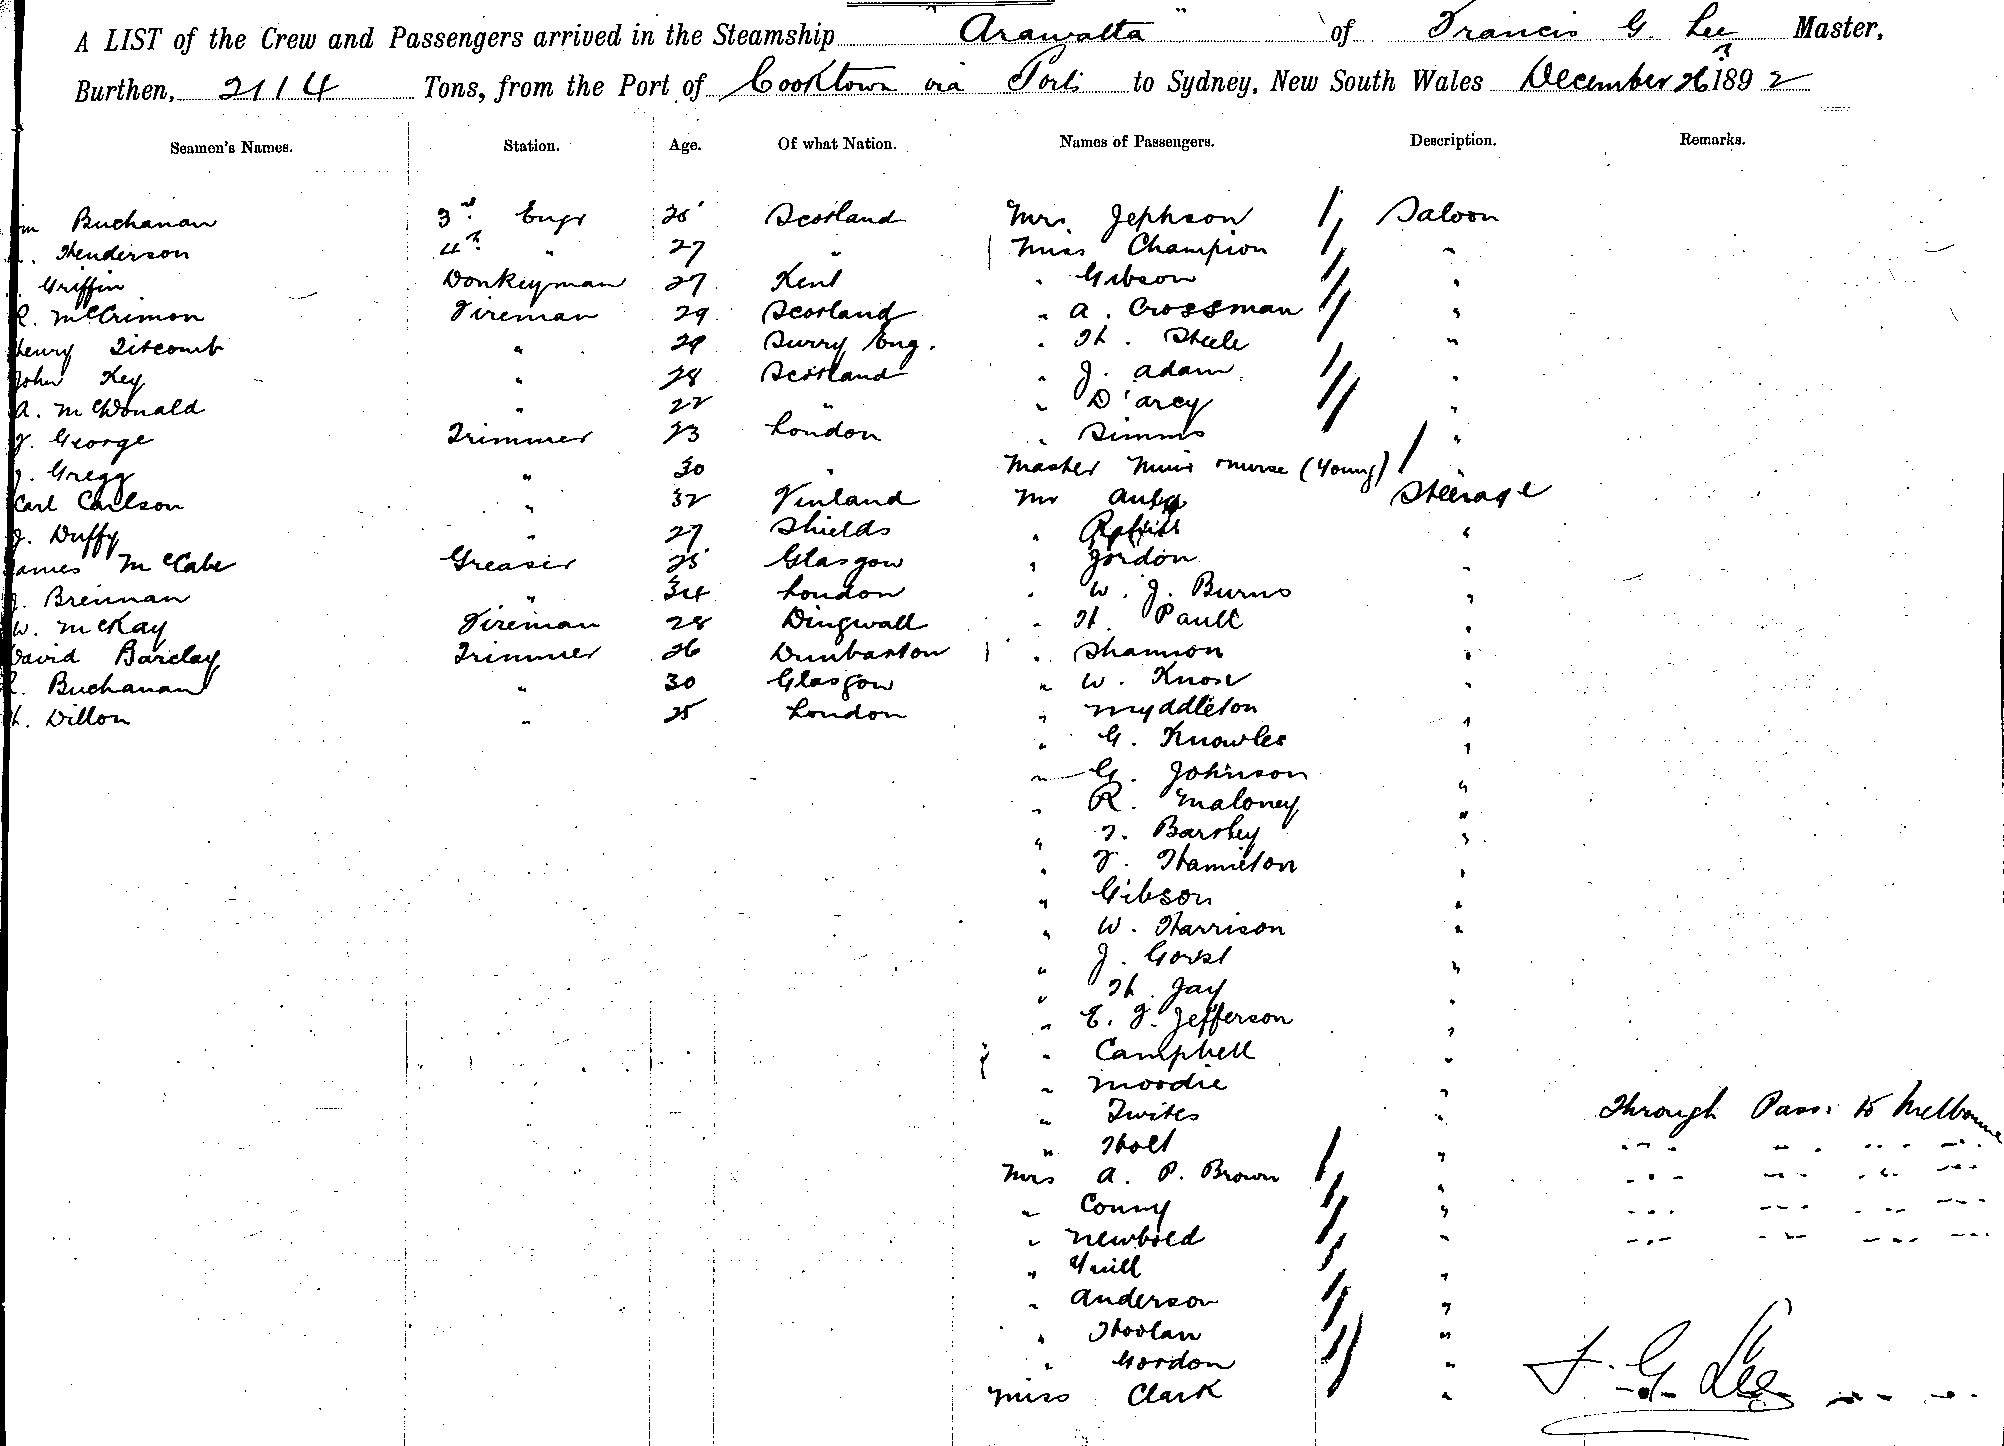 A LIST of the Crew and Passengers arrived in the Steamship "Arawatta" of Francis G. Lee Master,
Burthen, 2114 Tons, from the Port of Cooktown via Ports to Sydney, New South Wales December 26th 1892
Seamen's Names. Station. Age. Of what Nation. Names of Passengers. Description. Remarks.
Buchanan 3rd Engr 25 Scotland Mrs Jephson Saloon
Henderson 4th " 27 " Miss Champion "
Griffin Donkeyman 27 Kent " Gibson "
R. McCrimon Fireman 29 Scotland " A. Crossman "
Henry Titcomb " 29 Surry Eng. " H. Steele "
John Key " 28 Scotland " J. Adam "
A. McDonald " 22 " " D'arcy "
J. George Trimmer 23 London " Simms "
J. Gregg " 30 " Master Muir nurse (Young) "
Carl Carlson " 32 Finland Mr Steerage
J. Duffy " 27 Shields " "
James McCabe Greaser 25 Glasgow " Gordon "
J. Brennan " 34 London " W. J. Burns "
W. McKay Fireman 28 Dingwall " H. Pault "
David Barclay Trimmer 26 Dunbarton " Shannon "
Buchanan " 30 Glasgow " W. Knox "
H. Dillon " 25 London " Myddleton "
" G. Knowles "
" G. Johnson "
" R. Maloney "
" T. Barsley "
" F. Hamilton "
" Gibson "
" W. Harrison "
" J. Gorst "
" H. Jay "
" E. J. Jefferson "
" Campbell "
" Moodie "
" Twites " Through Pass: to Melbourne
" Holt " " " " "
Mrs A. P. Brown " " " " "
" Conny " " " " "
" Newbold " " " " "
" Quill "
" Anderson "
" Hoolan "
" Gordon "
Miss Clark "
F. G. Lee